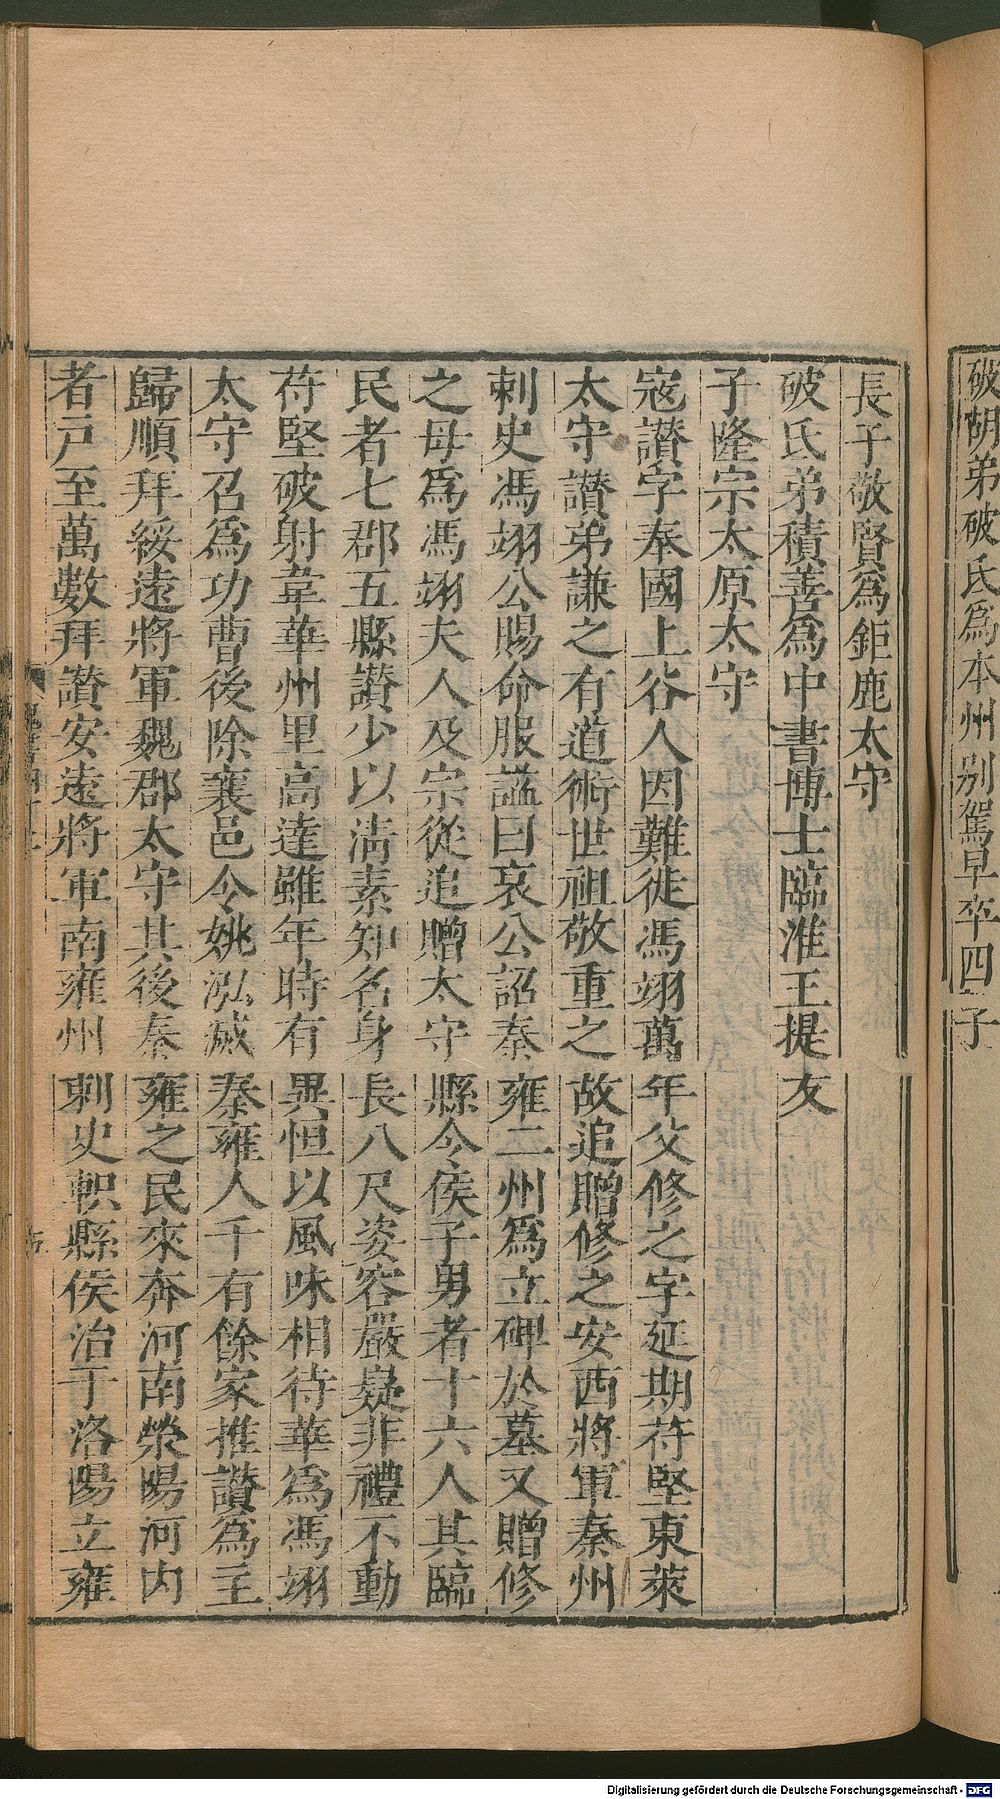 破胡弟破氐爲本州别駕早卒四子
長子敬賢爲鉅鹿太守
破氐弟積善爲中書博士臨淮王提友
子隆宗太原太守
寇讃字奉國上谷人因難徙馮翊萬年父修之字延期苻堅東萊
太守讃弟謙之有道術世祖敬重之故追贈修之安西將軍秦州
刺史馮翊公賜命服謚曰哀公詔秦雍二州爲立碑於墓又贈修
之母爲馮翊夫人及宗從追贈太守縣令侯子男者十六人其臨
民者七郡五縣讃少以清素知名身長八尺姿容嚴嶷非禮不動
苻堅破射韋華州里高達雖年時有異恒以風味相待華爲馮翊
太守召爲功曹後除襄邑令姚泓滅秦雍人千有餘家推讃爲主
歸順拜綏遠將軍魏郡太守其後秦雍之民來奔河南滎陽河内
者戸至萬數拜讃安遠將軍南雍州刺史軹縣侯治于洛陽立雍
Digitalisierung gefördert durch die Deutsche Forschungsgemeinschaft - DFG